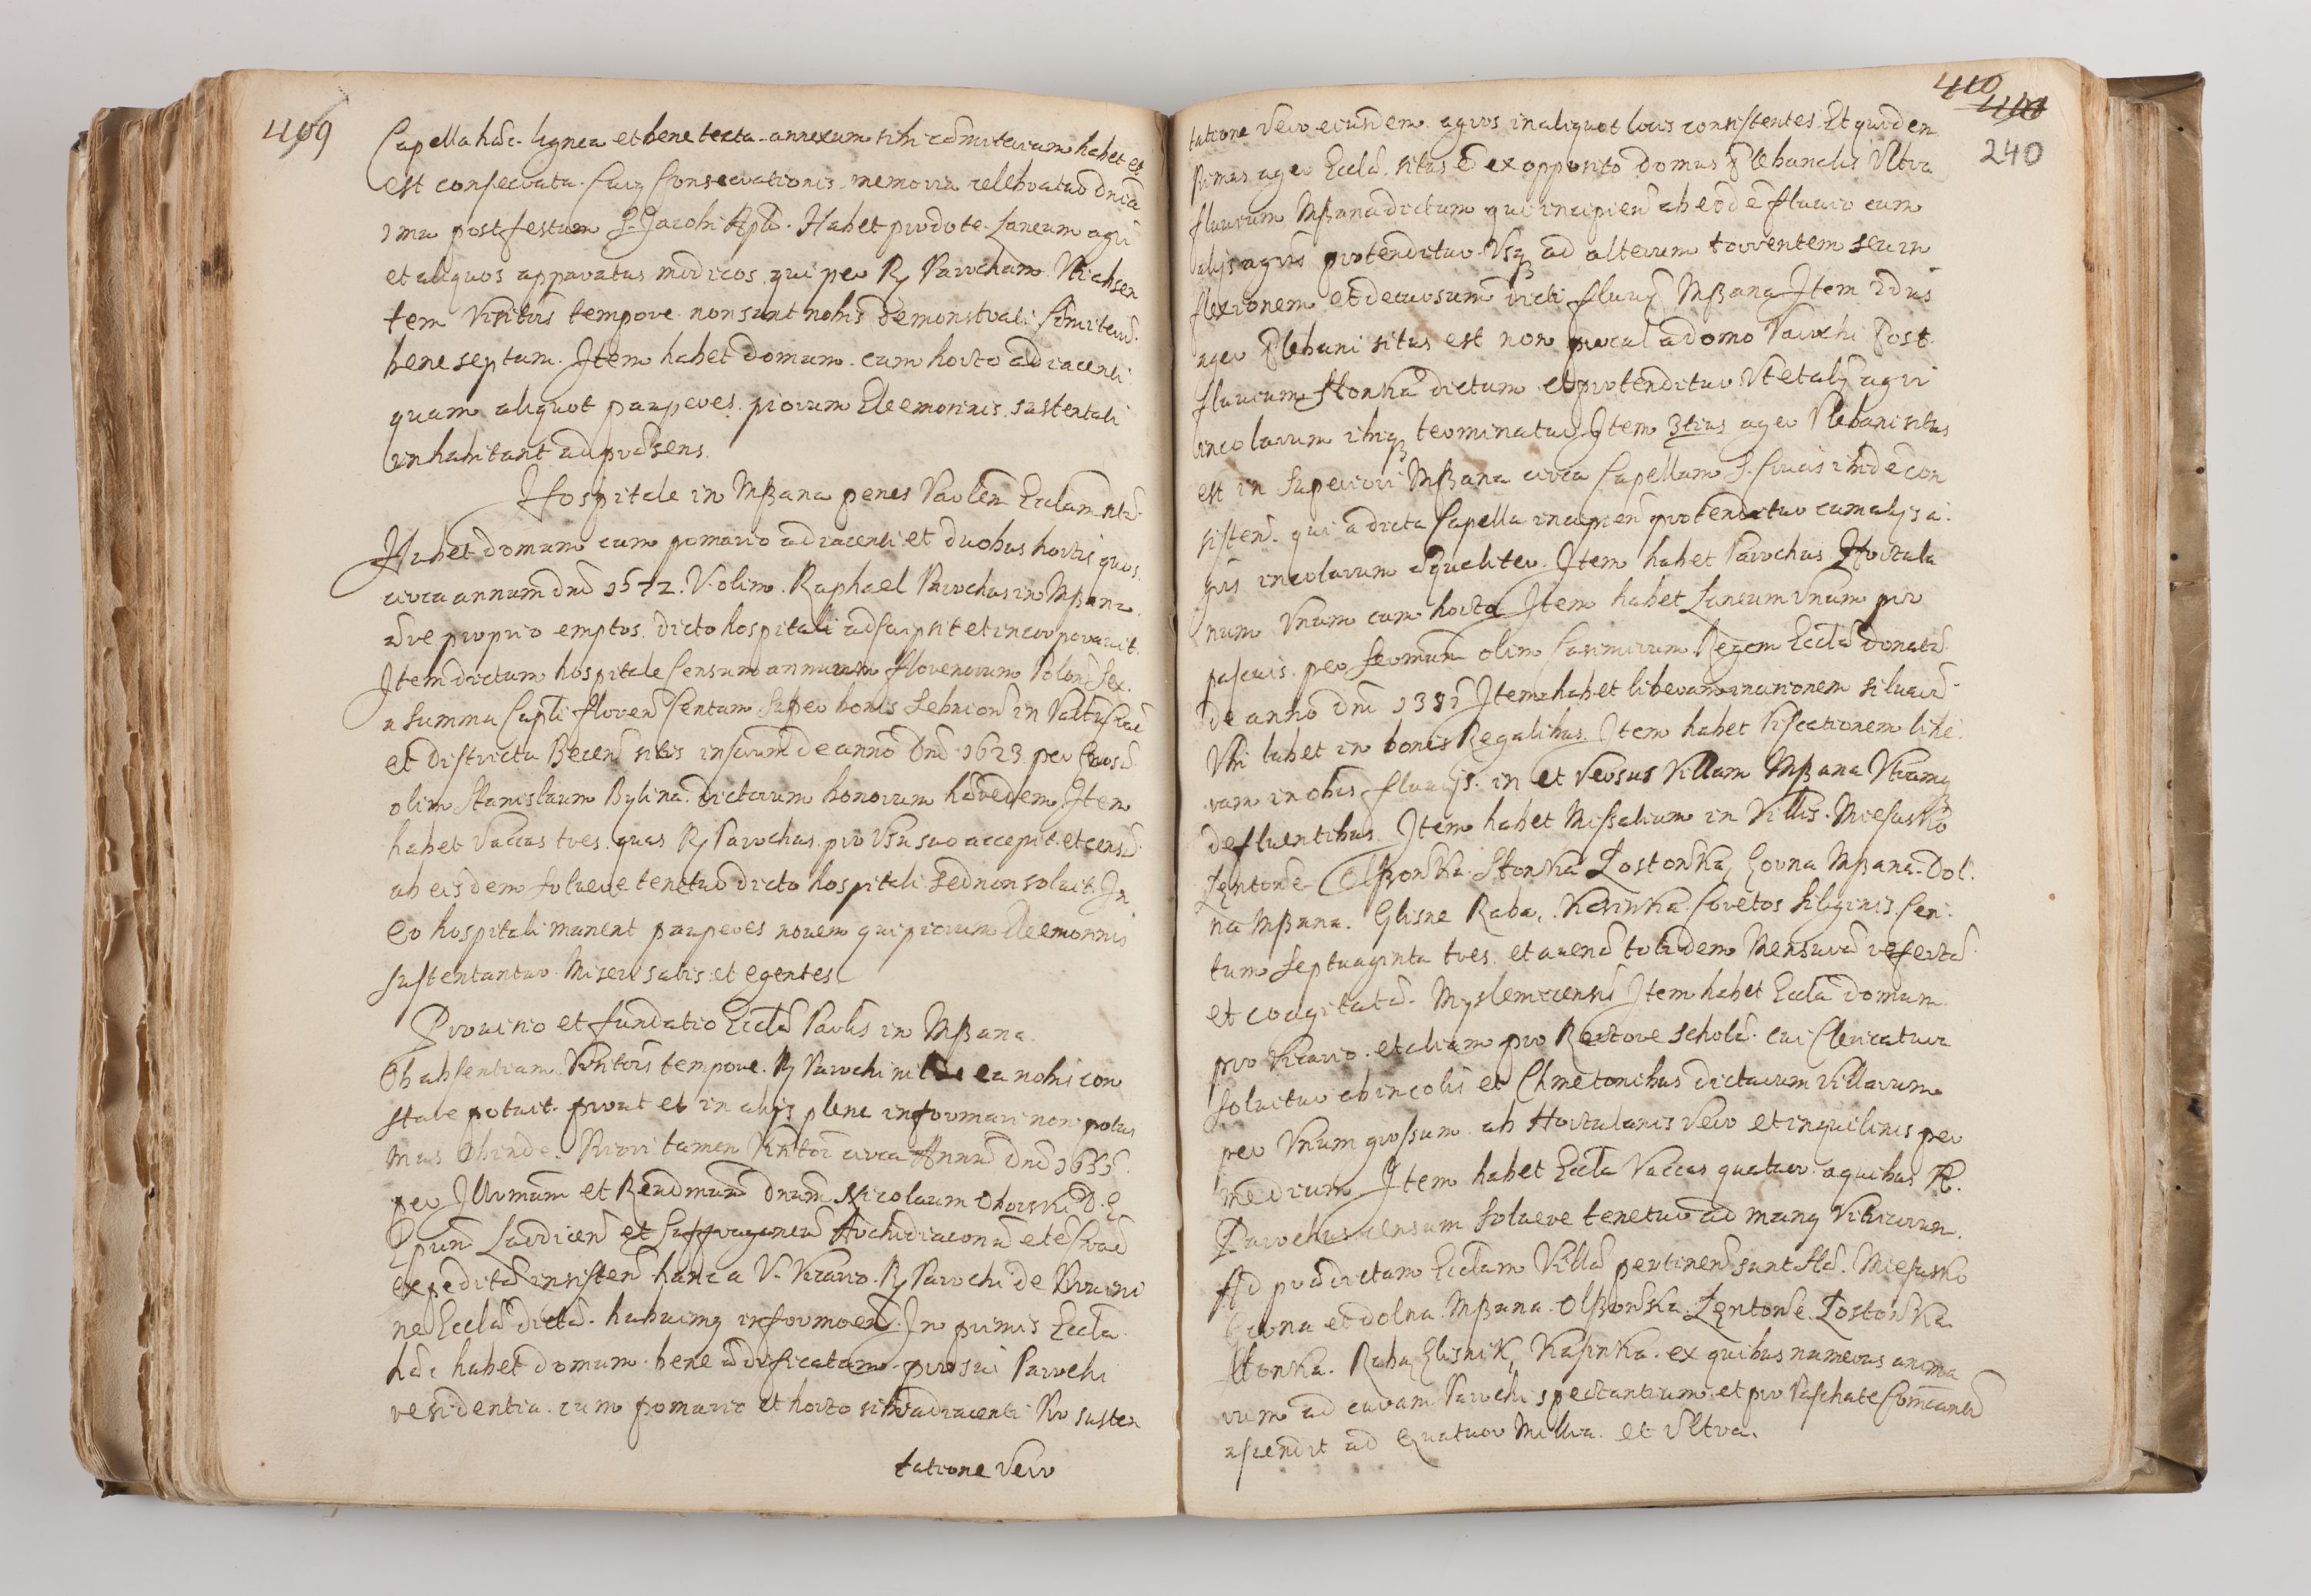 409
Capella hæc lignea et bene tecta annexum sibi cæmiterium habet et
est consecrata. Cuiq Consecrationis memoria celebratur Dnicâ
1ma post festum S. Jacobi Apli. Habet pro dote Laneum agri
et aliquos apparatus modicos qui per R Parochum Vti absen
tem Visitõis tempore non sunt nobis demonstrati Cæmiteriũ
bene septum. Item habet domum cum horto adiacenti
quam aliquot pauperes piorum Eleemosinis sustentati
inhabitant ad præsens.
Hospitale in Mßana penes Parlem Ecclam
Habet domum cum pomario adiacenti et duobus hortis quos
circa annum dnĩ 1572. V. olim Raphael Parochus in Mßana
ære proprio emptos dicto hospitali adscripsit et incorporavit.
Item dictum hospitale Censum annuum florenorum Polon Sex.
a summa Capli floren Centum super bonis
et districtu Becen sitis inscrum de anno Dnĩ 1623 per
olim Stanislaum Bylina dictorum bonorum hæredem Item
habet Vaccas tres quas R Parochus pro Vsu suo accepit et censũ
ab eisdem soluere tenetur dicto hospitali sed non soluit. In
eo hospitali manent pauperes novem qui piorum Eleemosinis
sustentantur Miseri satis et egentes
Prouisio et fundatio Ecclæ Parlis in Mßana.
Ob absentiam Visitõis tempore R Parochi nil de ea nobis con
stare potuit prout et in alijs plene informari non potui
mus obinde. Priori tamen Visitõi circa Annũ dnĩ
per Illrmum et Rendmum dnum Nicolaum Oborski D. G.
Epum Laodicen et Suffraganeũ Archidiaconũ
expeditæ insisten hanc a V. Vicario R Parochi de Prouisi
ne Ecclæ dictæ habuimq informoem. In primis Eccla
hæc habet domum bene ædificatam pro sui Parochi
residentia cum pomario et horto sibi adiacenti Pro susten
tatione Vero
410
410
240
tatione Vero eiusdem agros in aliquot locis consistentes Et quidem
Primus ager Ecclæ situs ẽ ex opposito domus Plebanalis Vltra
fluvium Mßana dictum qui incipien ab eodẽ fluvio cum
alijs agris protenditur Vsq ad alterum torrentem seu in
flexionem et decursum dicti fluvij Mßana Item 2dus
ager Plebani situs est non procul a domo Parochi Post
fluvium Słonka dictum et protenditur Vt et alij agri
incolarum ibiq terminatur. Item 3tius ager Plebani situs
est in Superiori Mßana circa Capellam S. Crucis ibidẽ con
sisten qui a dicta Capella incipien protenditur cum alijs a
gris incolarum æqualiter. Item habet Parochus Hortula
num Vnum cum horto Item habet Laneum Vnum pro
pascuis per Sermum olim Casimirum Regem Ecclæ donatũ
de anno Dnĩ Item habet liberam silvarũ
Vbi lubet in bonis Regalibus. Item habet Piscationem libe
ram in oibus fluvijs in et Versus Villam Mßana Vtramq
defluentibus Item habet Missalium in Villis Mieſcisko
Łentowe Olßowka Słonka Łostowka, Gorna Mßana Dol
na Mßana. Glisne Raba, Kasinka Coretos Siliginis Cen
tum Septuaginta tres et avenæ totidem Mensuræ refertæ
et coagitatæ Myslemicensis Item habet Eccla domum
pro Vicario et aliam pro Rectore Scholæ cui Clericatura
soluitur ab incolis et Chmetonibus dictarum Villarum
per Vnum grossum ab Hortulanis Vero et inquilinis per
medium Item habet Eccla Vaccas quatuor a quibus R.
Parochus censum soluere tenetur ad manq Vitricorum.
Ad prædictam Ecclam Villæ pertinen sunt Mieſcisko
Gorna et dolna Mßana Olßowka. Łentowe. Łostowka
Słonka. Raba, Glisnik, Kasinka. ex quibus numerus anima
rum ad curam Parochi spectantium et pro Paschate Coicantiũ
ascendit ad Quatuor Millia et Vltra.